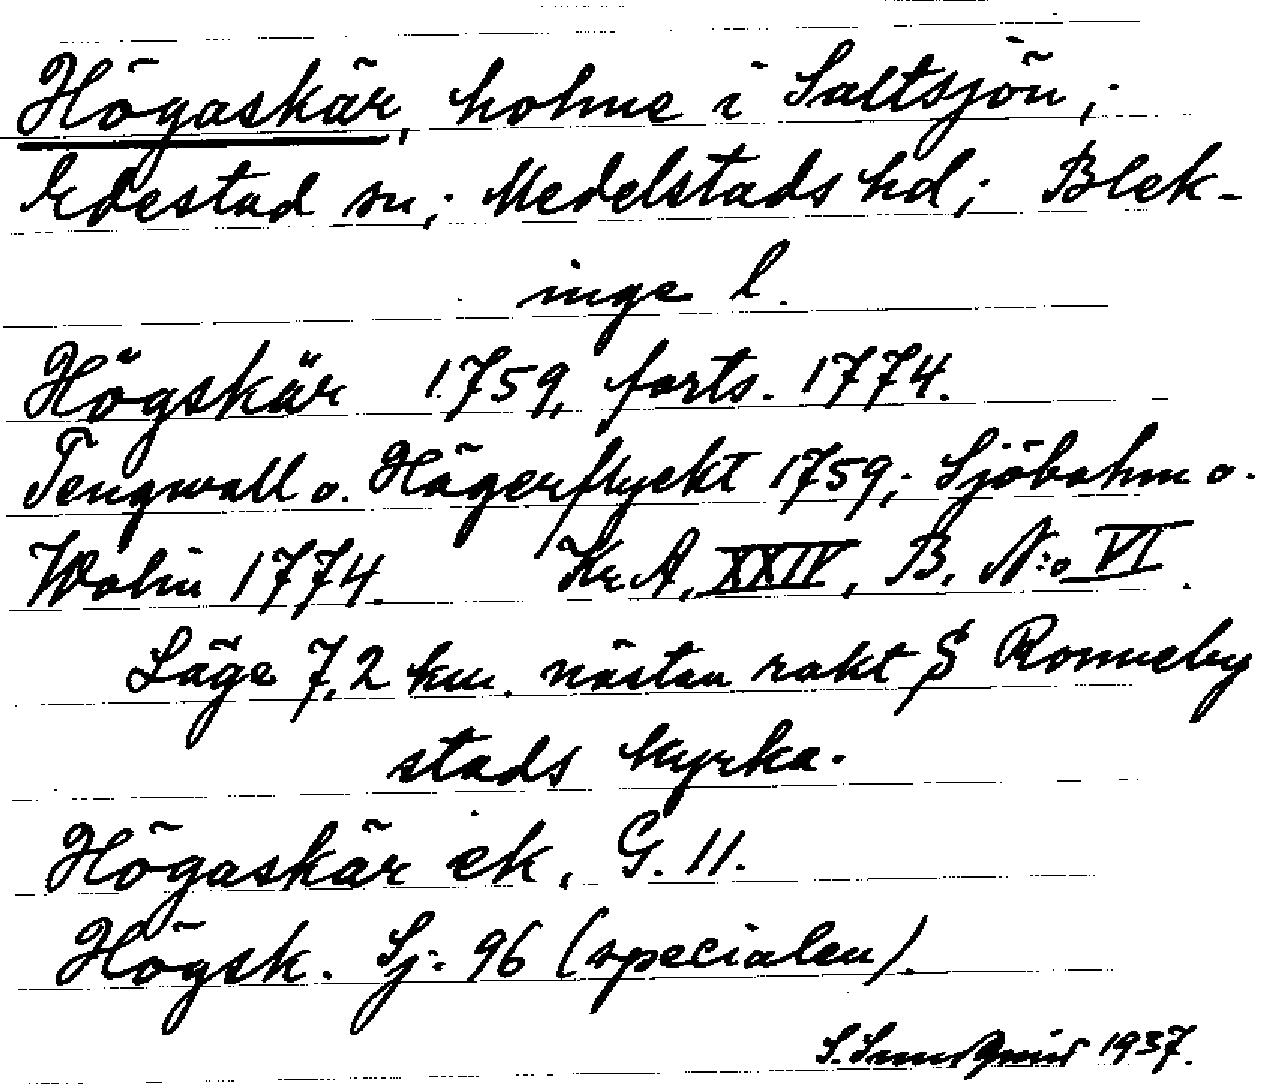 Högaskär, holme i Saltsjön;
Edestad sn; Medelstads hd; Blek-
inge l.
Högskär 1759, forts. 1774.
Tengwall o. Hägerflyckt 1759; Sjöbohm o.
Wolin 1774. Kr. A. XXIV, B. N:o VI.
Läge 7,2 km. nästan rakt S Ronneby
stads kyrka.
Högaskär ek. G. 11.
Högsk. Sj: 96 (specialen).
1937.